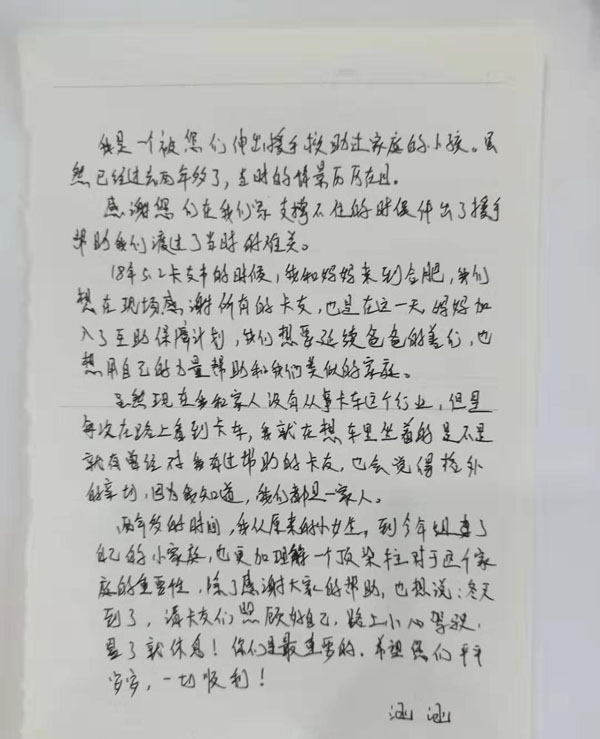 我是一个被您们伸出援手救助过家庭的小孩。虽
然已经过去两年多了，当时的情景历历在目。
感谢您们在我们家支撑不住的时候伸出了援手
帮助我们渡过了当时的难关。
18年5.2卡友节的时候，我和妈妈来到合肥，我们
想在现场感谢所有的卡友，也是在这一天妈妈加
入了互助保障计划，我们想要延续爸爸的善行，也
想用自己的力量帮助和我们类似的家庭。
虽然现在我和家人没有从事卡车这个行业，但是
每次在路上看到卡车，我就在想车里坐着的是不是
就有曾经对我有过帮助的卡友，也会觉得格外
的亲切，因为我知道，我们都是一家人。
两年多的时间，我从原来的小女生，到今年组建了
自己的小家庭，也更加理解一个顶梁柱对于这个家
庭的重要性，除了感谢大家的帮助，也想说：冬天
到了，请卡友们照顾好自己，路上小心驾驶，
累了就休息！你们是最重要的，希望您们平平
安安，一切顺利！
涵涵